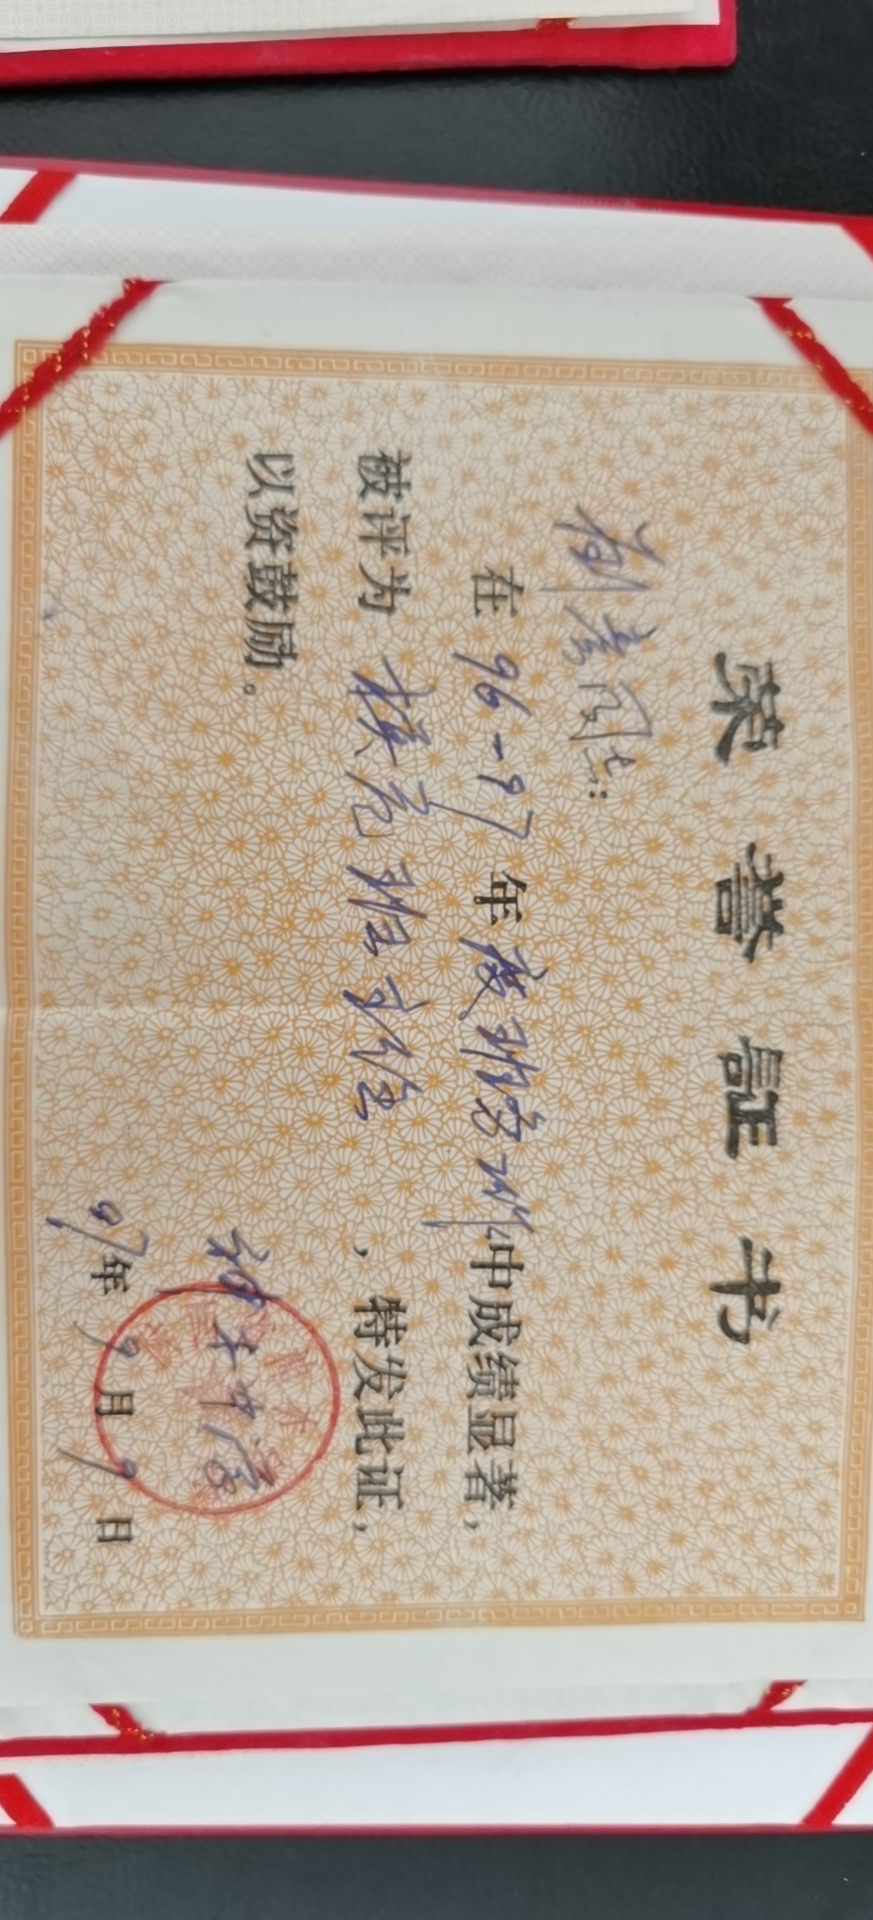 荣誉证书
同志:
在96-97年度班务工作中成绩显著,
被评为模范班主任,特发此证,
以资鼓励。
中学
97年9月9日